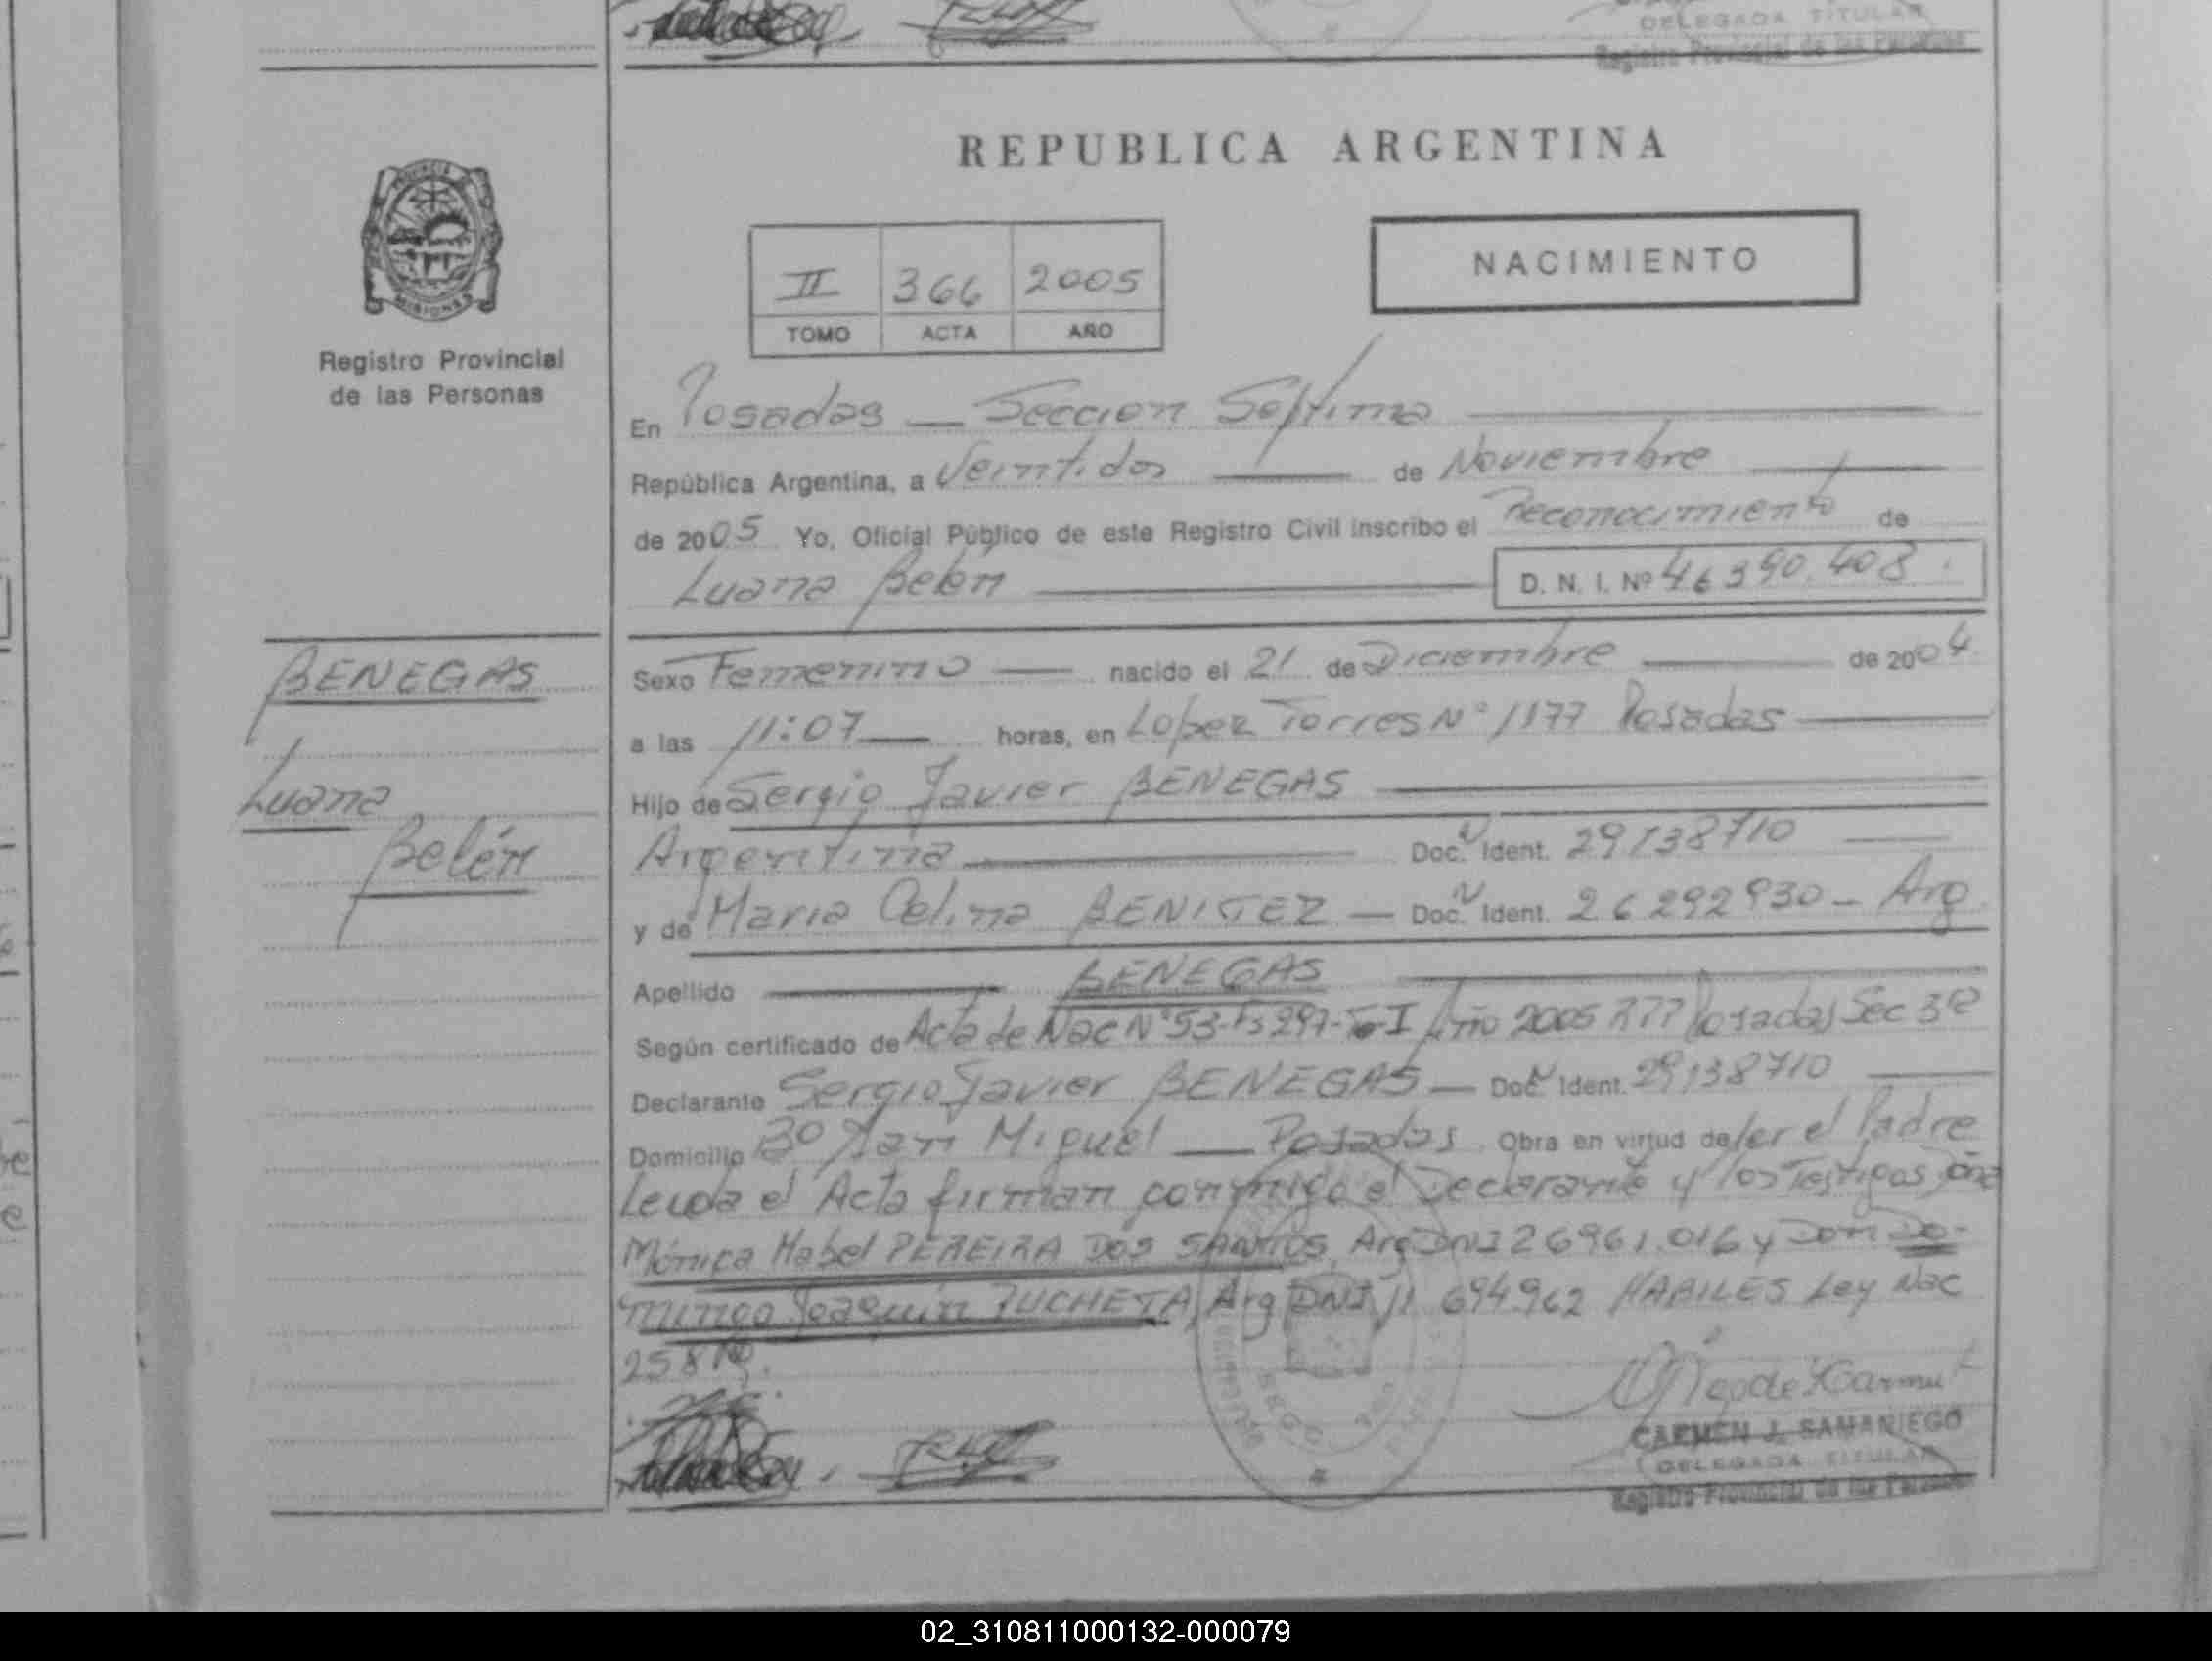 DELEGADA TITULAR
Registro Provincial de las Personas
REPUBLICA ARGENTINA
PROVINCIA DE
MISIONES
Registro Provincial
de las Personas
II 366 2005
TOMO ACTA AÑO
NACIMIENTO
En Posadas — Seccion Septima
República Argentina, a Veintidos — de Noviembre
de 2005 Yo, Oficial Público de este Registro Civil inscribo el Reconocimiento de
Luana Belén D. N. I. Nº 46390.408.
BENEGAS
Luana
Belén
Sexo Femenino — nacido el 21 de Diciembre — de 2004
a las 11:07 — horas, en Lopez Torres Nº 1177 Posadas
Hijo de Sergio Javier BENEGAS
Argentina — Doc. Ident. 29138710
y de Maria Celina BENITEZ — Doc. Ident. 26292930 - Arg.
Apellido — BENEGAS
Según certificado de Acta de Nac Nº 53-Fs 297-To-I Año 2005 Posadas Sec 3ª
Declarante Sergio Javier BENEGAS — Doc. Ident. 29138710
Domicilio Bº San Miguel — Posadas. Obra en virtud de ser el Padre
Leída el Acta firman conmigo el Declarante y los Testigos Doña
Mónica Mabel PEREIRA DOS SANTOS, Arg DNI 26961.016 y Don Do-
mingo Joaquín ZUCHETA, Arg DNI 11 694962 HABILES Ley Nac
CARMEN J. SAMANIEGO
DELEGADA TITULAR
Registro Provincial de las Personas
02_310811000132-000079